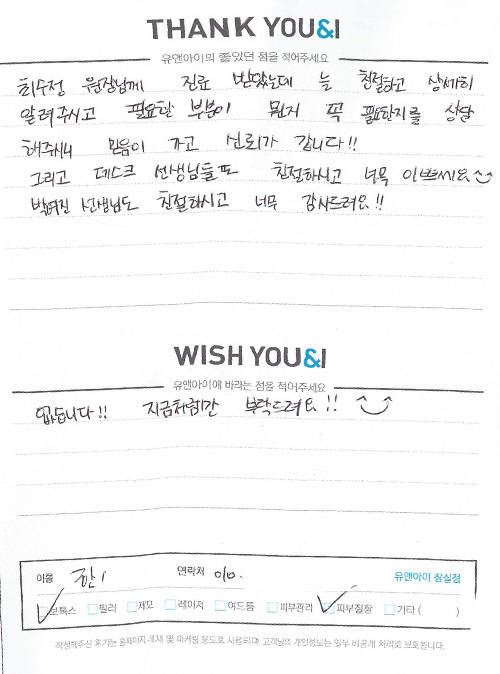 THANK YOU&I
유앤아이의 좋았던 점을 적어주세요
최수정 원장님께 진료 받았는데 늘 친절하고 상세히
알려주시고 필요한 부분이 뭔지 꼭 필요한지를 상담
해주시니 믿음이 가고 신뢰가 갑니다!!
그리고 데스크 선생님들도 친절하시고 너무 이쁘세요
박여진 선생님도 친절하시고 너무 감사드려요!!
WISH YOU&I
유앤아이에 바라는 점을 적어주세요
없습니다!! 지금처럼만 부탁드려요!!
이름 한 연락처 010. 유앤아이 잠실점
보톡스 필러 제모 레이저 여드름 피부관리 피부질환 기타 ( )
작성해주신 후기는 홈페이지 게재 및 마케팅 용도로 사용되며 고객님의 개인정보는 일부 비공개 처리로 보호됩니다.